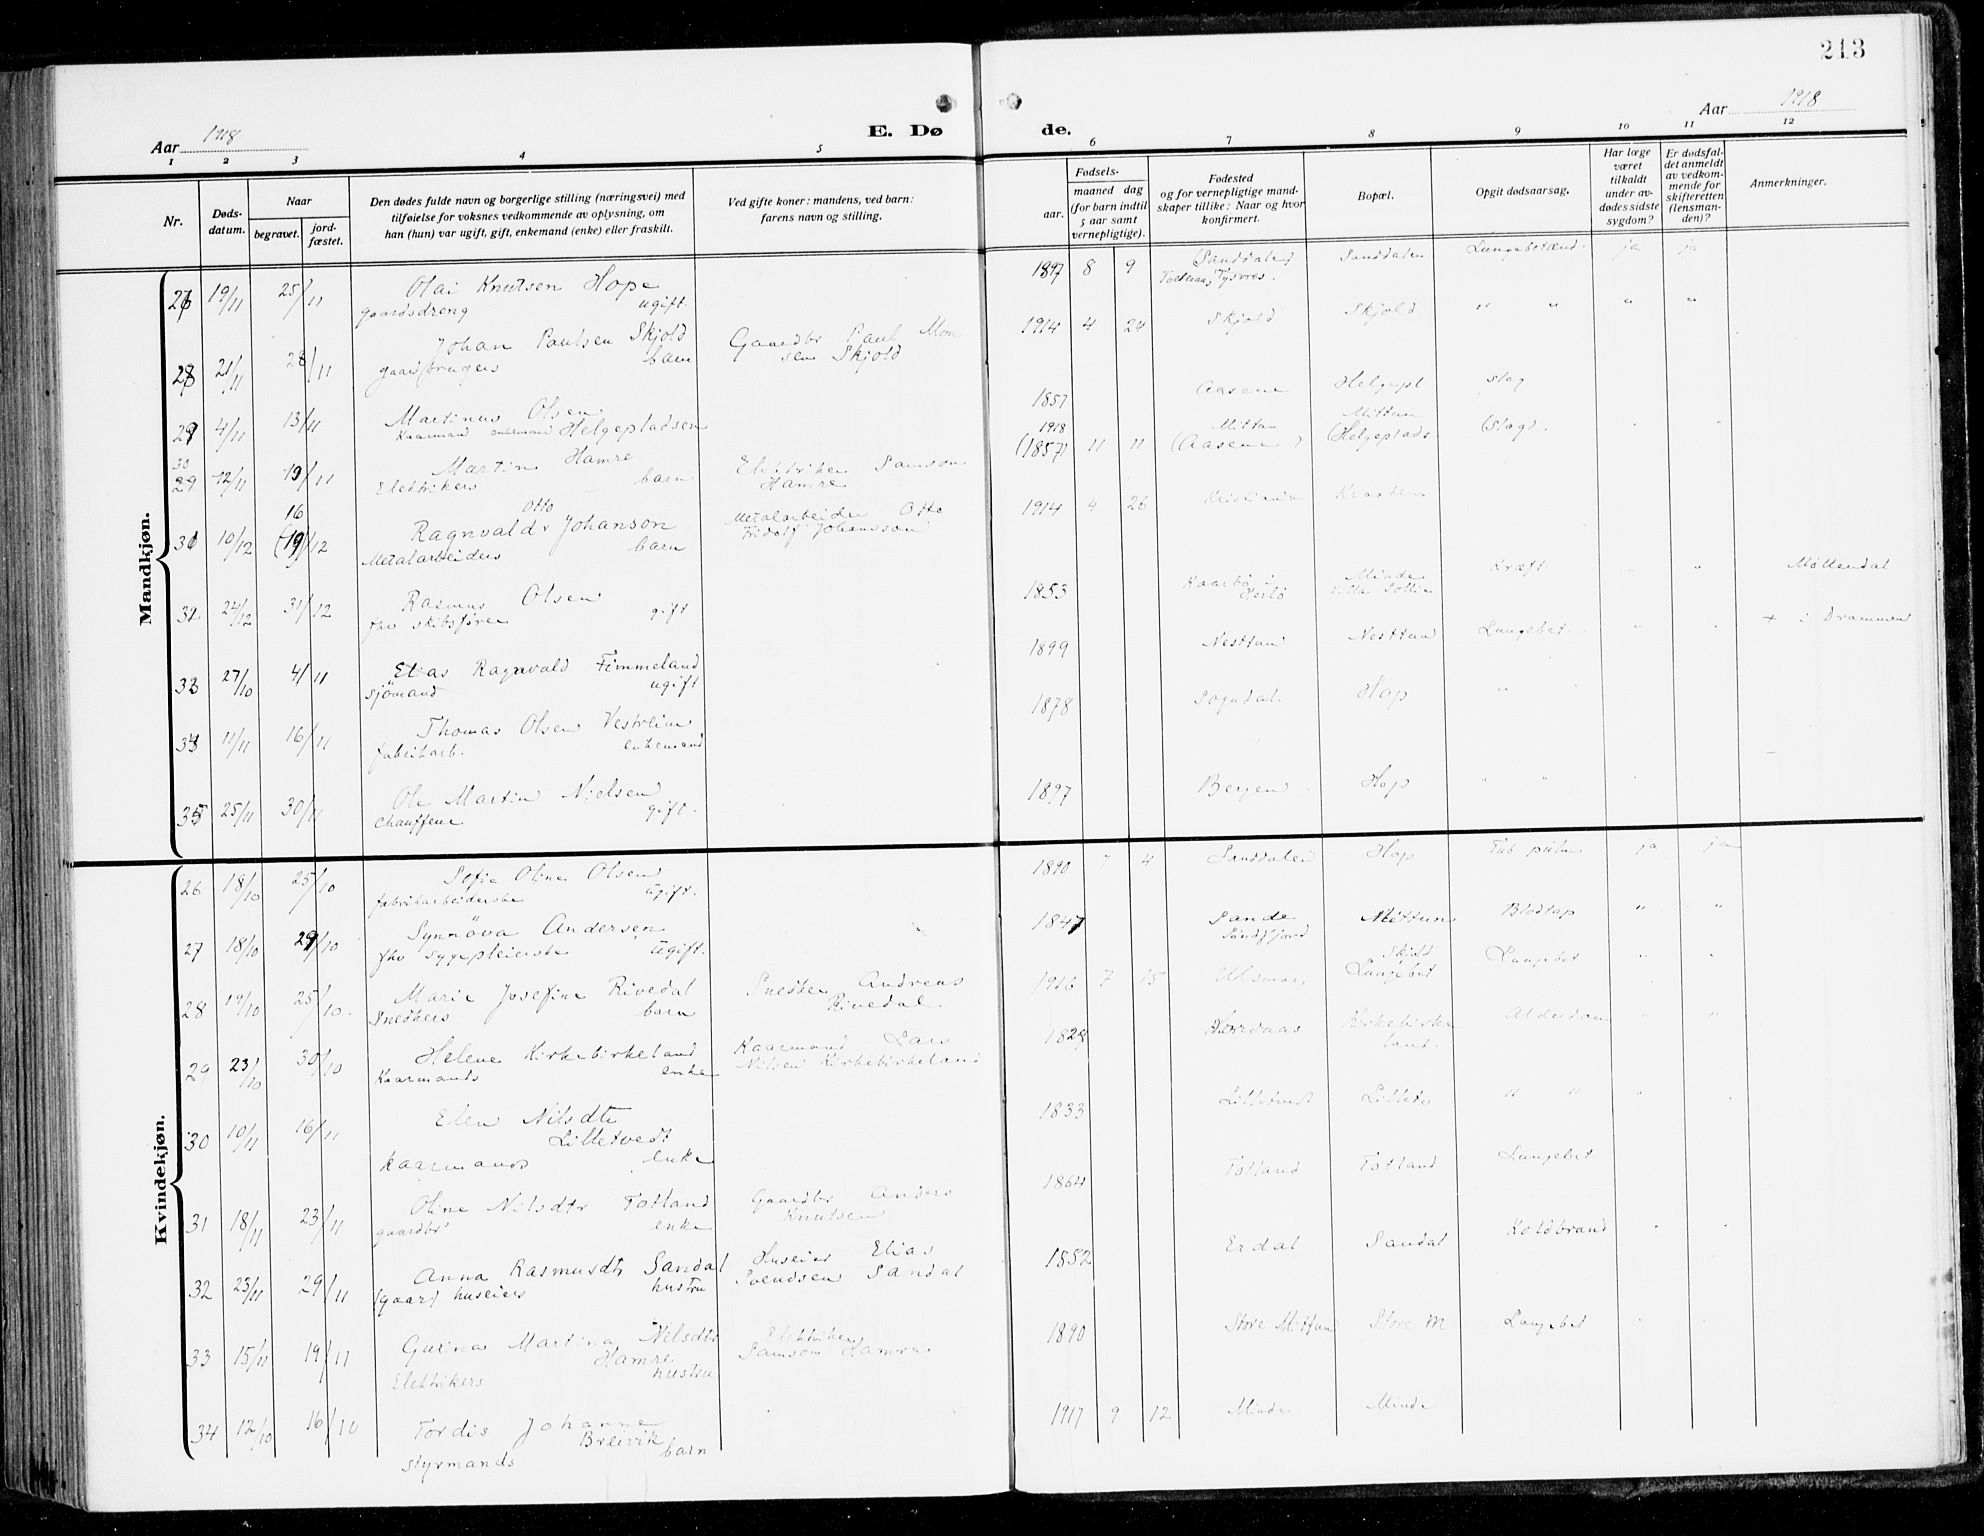 213
Aar 1918
E. Dø
de.
Aar 1918
1 2 3 4 5 6 7 8 9 10 11 12
Nr.
Døds-
datum.
Naar
begravet.
jord-
fæstet.
Den dødes fulde navn og borgerlige stilling (næringsvei) med
tilføielse for voksnes vedkommende av oplysning, om
han (hun) var ugift, gift, enkemand (enke) eller fraskilt.
Ved gifte koner: mandens, ved barn:
farens navn og stilling.
Fødsels-
aar.
maaned dag
(for barn indtil
5 aar samt
vernepligtige).
Fødested
og for vernepligtige mand-
skaper tillike: Naar og hvor
konfirmert.
Bopæl.
Opgit dødsaarsag.
Har læge
været
tilkaldt
under av-
dødes sidste
sygdom?
Er dødsfal-
det anmeldt
av vedkom-
mende for
skifteretten
(lensman-
den)?
Anmerkninger.
Mandkjøn.
19/11 25/11 Olai Knutsen Hope 1897 8 9 Sanddalen Sanddalen Lungebetænd. ja ja
gaardsdreng ugift. Tysnes.
28 21/11 28/11 Johan Paulsen Skjold Gaardbr Paul Mon 1914 4 24 Skjold Skjold " " " "
gaardbrugers barn sen Skjold
29 4/11 13/11 Martinus Olsen 1857 Aasene Helgepl slag
Kaarmand enkemand Helgepladsen
30
29 12/11 19/11 Martin Hamre Elektriker Samson 1918 (1857) 11 11 Mittun (Aasene) Mittun (Helgeplads (slag).
Elektrikers barn Hamre
16
10/12 (19)/12 Ragnvald Otto Johanson Metalarbeider Otto 1914 4 26 Kristiania
Metalarbeiders barn Fridolf Johansson
24/12 31/12 Rasmus Olsen 1853 Minde Kræft Møllendal
fhv skibsfører gift
27/10 4/11 Elias Ragnvald Fimmeland 1899 Nesttun Nesttun Lungebet. + i Drammen
sjömand ugift
11/11 16/11 Thomas Olsen Vestrheim 1878 Sogndal. Hop " "
fabrikarb. enkemand
35 25/11 30/11 Ole Martin Nielsen 1897 Bergen Hop " "
Chauffeur gift.
Kvindekjøn.
26 18/10 25/10 Sofie Oline Olsen 1890 7 4 Sanddalen Hop ja ja
fabrikarbeiderske ugift.
27 18/10 29/10 Synnöva Andersen 1847 Sande Mittun Blodtap " "
fhv sygepleierske ugift. Söndfjord
28 19/10 25/10 Marie Josefine Rivedal Snedker Andreas 1916 7 15 Skjold Lungebet Lungebet
Snedkers barn Rivedal.
29 23/10 30/10 Helene Kirkebirkeland Kaarmand Lars Kirkebirke Alderdom " "
Kaarmands enke Nilsen Kirkebirkeland land.
30 10/11 16/11 Elen Nilsdtr 1833 Lilletvedt " "
Lilletvedt
kaarmands enke
31 18/11 23/11 Oline Nilsdtr Totland Gaardbr Anders 1864 Totland Totland Lungebet
gaardbr enke Knutsen
32 23/11 29/11 Anna Rasmusdtr Sandal Huseier Elias 1852 Erdal Sandal Koldbrand
(gaar) huseiers hustru Svendsen Sandal
33 15/11 19/11 Gurina Martina Nilsdtr Elektriker 1890 Store Mittun Store M Lungebet
Hamre Samson Hamre
Elektrikers hustru
34 12/10 16/10 Tordis Johanne 1917 9 12 Minde Minde
Breivik
styrmands barn